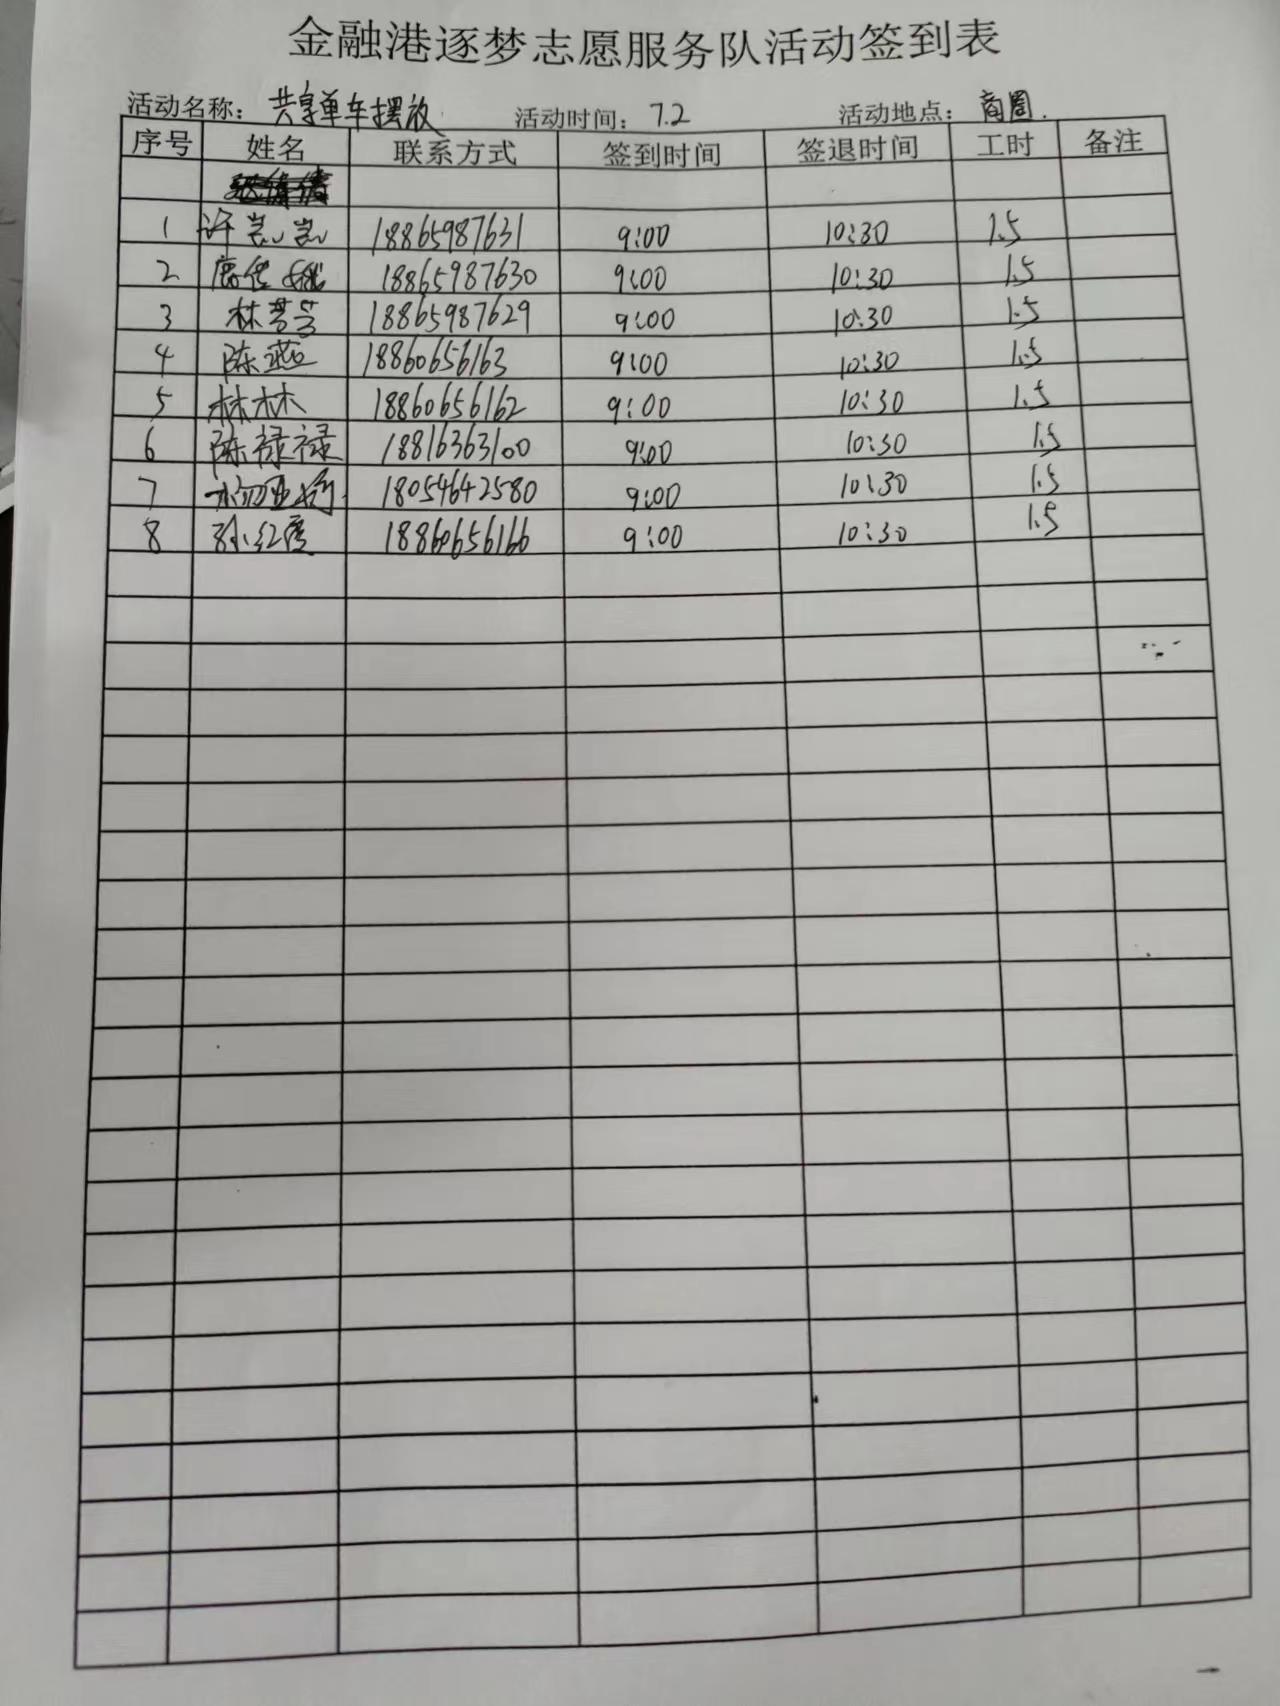 金融港逐梦志愿服务队活动签到表
活动名称：共享单车摆放 活动时间：7.2 活动地点：商圈.
序号 姓名 联系方式 签到时间 签退时间 工时 备注
1 许岚岚 18865987631 9:00 10:30 1.5
2 18865987630 9:00 10:30 1.5
3 林芸芸 18865987629 9:00 10:30 1.5
4 陈燕 18860656163 9:00 10:30 1.5
5 林林 18860656162 9:00 10:30 1.5
6 陈禄禄 18816363100 9:00 10:30 1.5
7 18054642580 9:00 10:30 1.5
8 孙红霞 18860656166 9:00 10:30 1.5